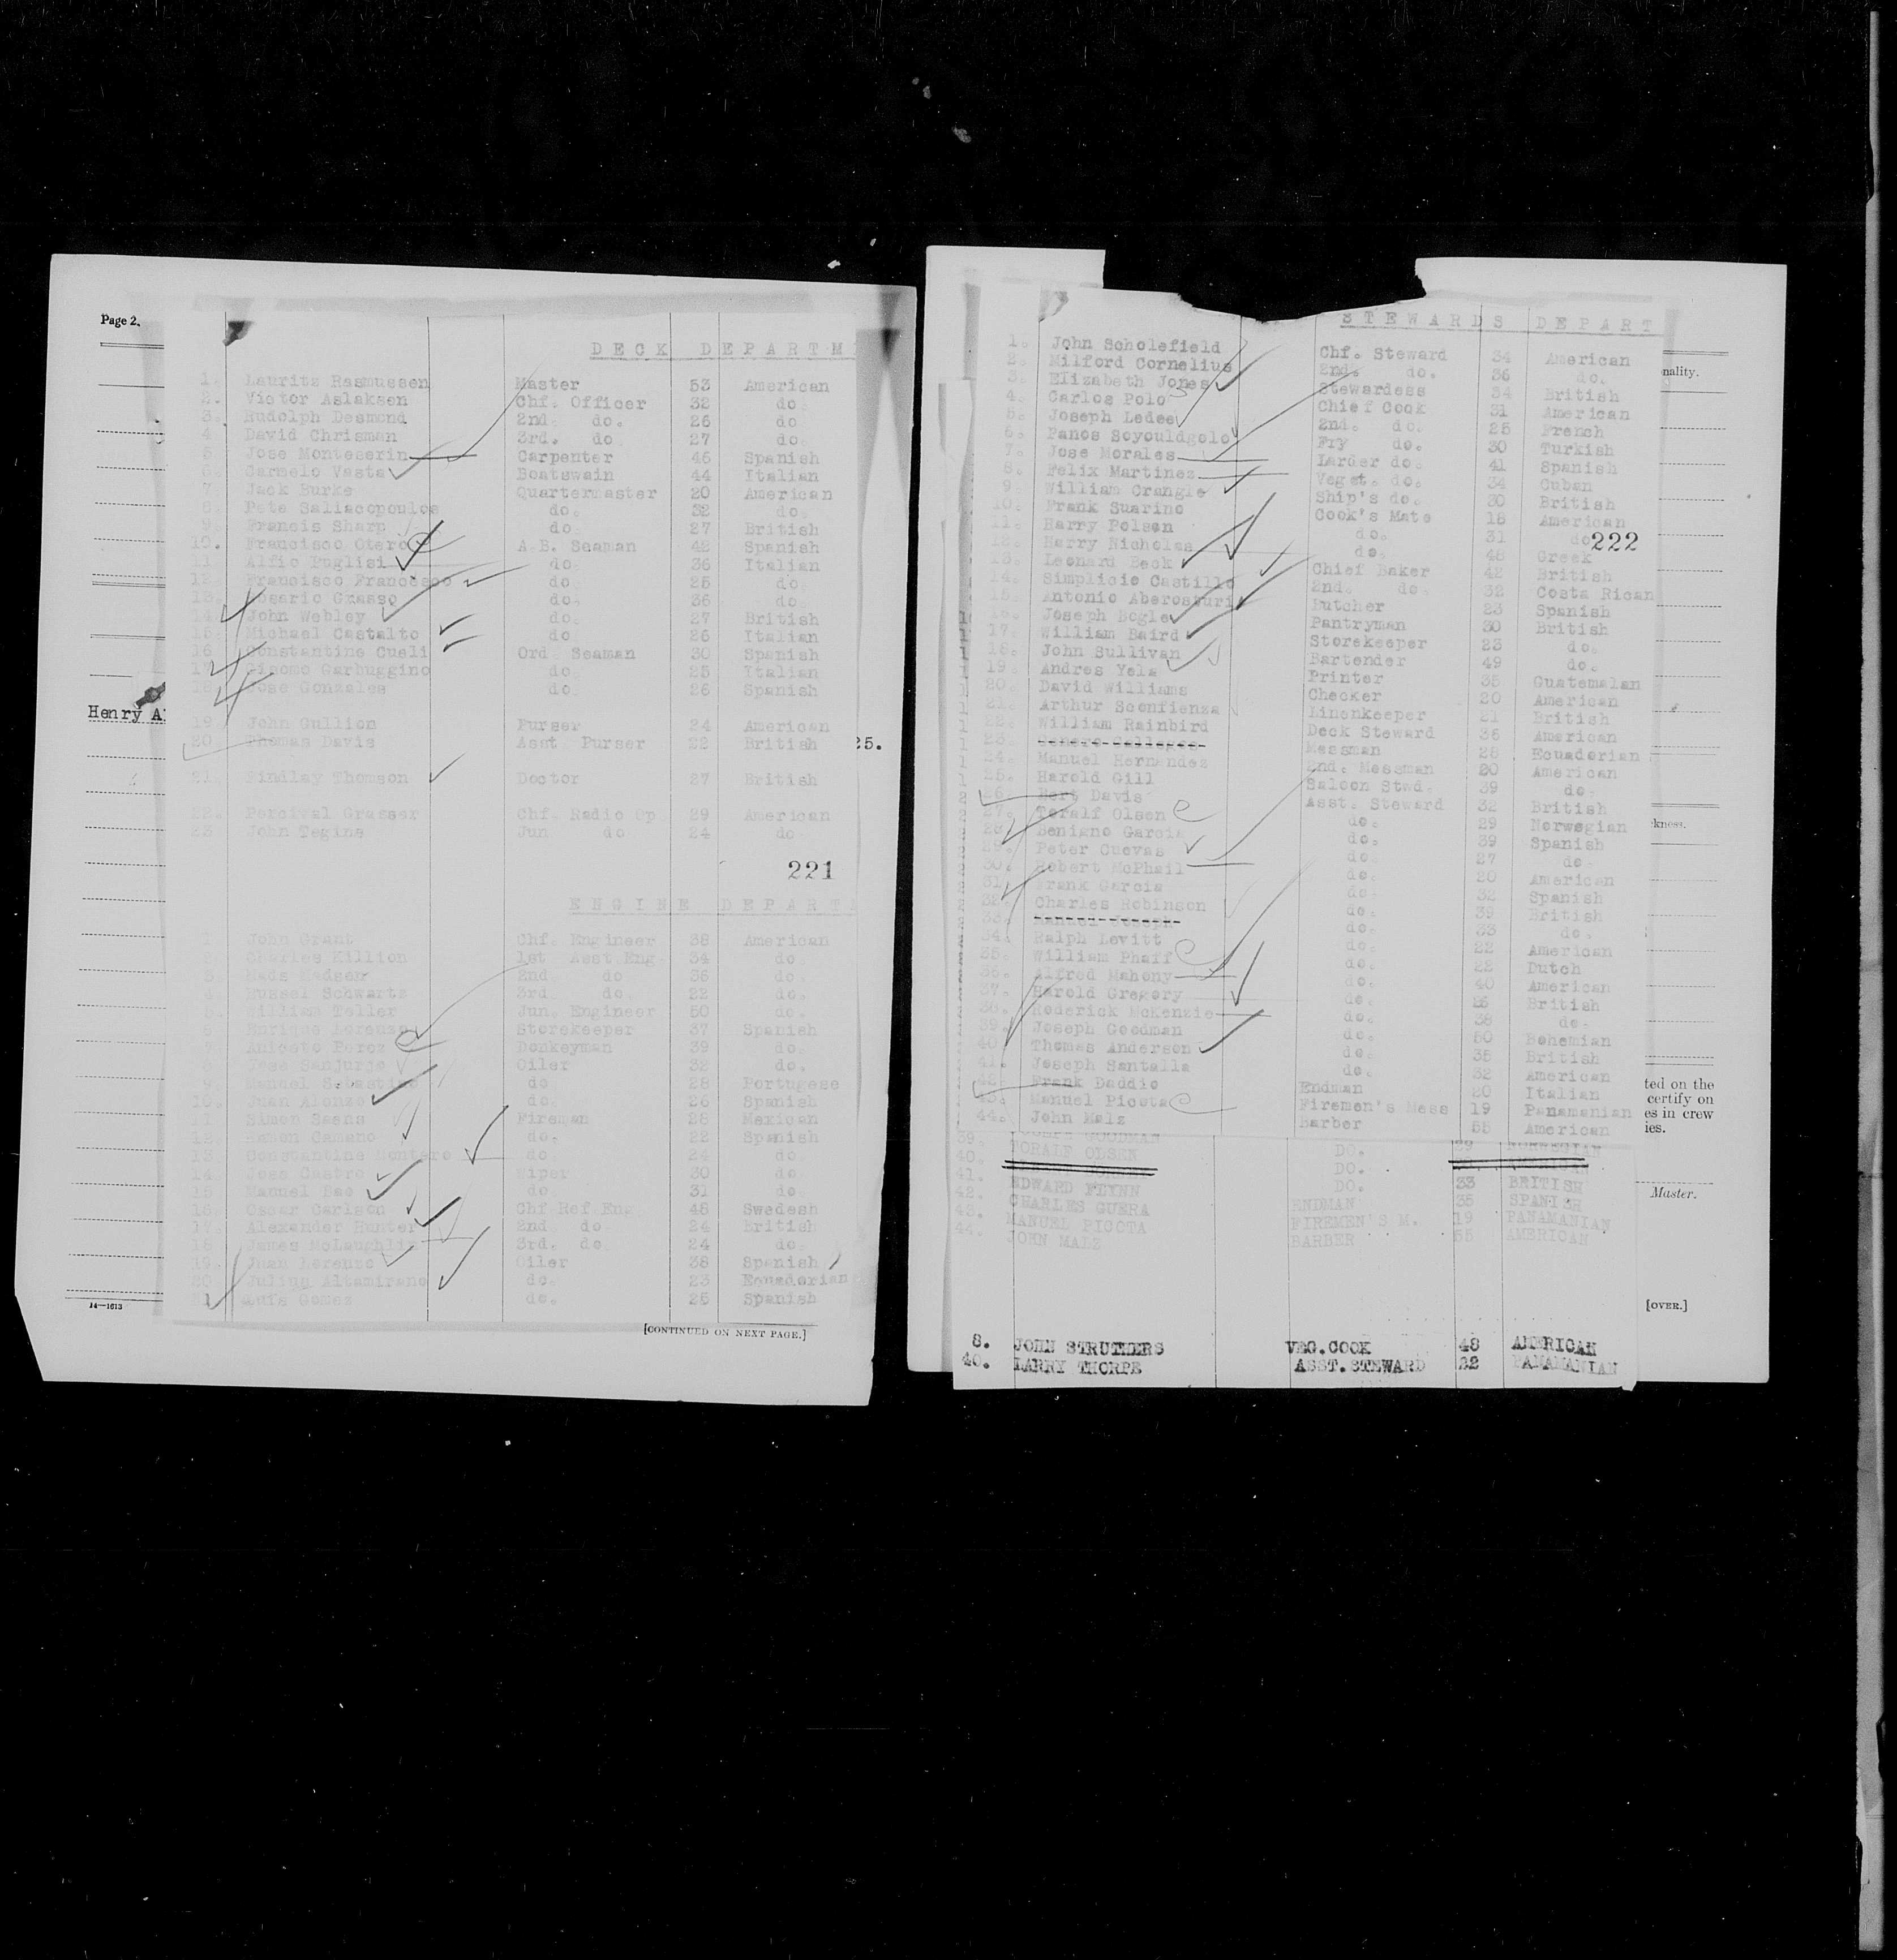 Page 2.
DECK DEPARTM
1. Lauritz Rasmussen Master 53 American
2. Victor Aslaksen Chf. Officer 32 do.
3. Rudolph Desmond 2nd. do. 26 do
4. David Chrisman 3rd. do 27 do.
5. Jose Monteserin Carpenter 46 Spanish
6. Carmelo Vasta Boatswain 44 Italian
7. Jack Burke Quartermaster 20 American
8. Pete Saliacopoulos do. 32 do.
9. Francis Sharp do. 27 British
10. Francisco Otero A.B. Seaman 42 Spanish
11. Alfio Puglisi do. 36 Italian
12. Francisco Francesco do. 25 do.
13. Rosario Grasso do. 36 do.
14. John Webley do. 27 British
15. Michael Castalto do 26 Italian
16. Constantine Cueli Ord. Seaman 30 Spanish
17. Giacomo Garbuggino do. 25 Italian
18. Jose Gonzales do. 26 Spanish
Henry A
19. John Gullion Purser 24 American
20. Thomas Davis Asst. Purser 22 British 25.
21. Findlay Thomson Doctor 27 British
22. Percival Grasser Chf. Radio Op. 29 American
23. John Tegins Jun do 24 do
221
ENGINE DEPART
1. John Grant Chf. Engineer 38 American
2. Charles Killion 1st. Asst Eng. 34 do.
3. Mads Madsen 2nd. do 36 do.
4. Russel Schwartz 3rd. do 22 do.
5. William Teller Jun. Engineer 50 do.
6. Enrique Lorenzo Storekeeper 37 Spanish
7. Aniceto Perez Donkeyman 39 do.
8. Jose Sanjurjo Oiler 32 do.
9. Manuel Sebastine do 28 Portugese
10. Juan Alonzo do. 26 Spanish
11. Simon Saens Fireman 28 Mexican
12. Ramon Camano do. 22 Spanish
13. Constantine Montero do. 24 do.
14. Jose Castro Wiper 30 do
15. Manuel Deo do. 31 do
16. Oscar Carlson Chf Ref Eng 48 Swedesh
17. Alexander Hunter 2nd. do 24 British
18. James McLaughlin 3rd. do 24 do.
19. Juan Lorenzo Oiler 38 Spanish
20. Julius Altamirano do. 23 Ecuadorian
21. Luis Gomez do. 25 Spanish
14—1613
[CONTINUED ON NEXT PAGE.]
STEWARDS DEPART
1. John Scholefield Chf. Steward 34 American
2. Milford Cornelius 2nd. do. 36 do.
3. Elizabeth Jones Stewardess 34 British
4. Carlos Polo Chief Cook 31 American
5. Joseph Ledee 2nd. do. 25 French
6. Panos Soyouldgolo Fry do. 30 Turkish
7. Jose Morales Larder do. 41 Spanish
8. Felix Martinez Veget. do. 34 Cuban
9. William Crangle Ship's do. 30 British
10. Frank Suarino Cook's Mate 18 American
11. Harry Polson do. 31 do
222
12. Harry Nicholas do. 48 Greek
13. Leonard Beck Chief Baker 42 British
14. Simplicio Castillo 2nd. do. 32 Costa Rican
15. Antonio Aberosturi Butcher 23 Spanish
16. Joseph Bogle Pantryman 30 British
17. William Baird Storekeeper 23 do.
18. John Sullivan Bartender 49 do.
19. Andres Yela Printer 35 Guatemalan
20. David Williams Checker 20 American
21. Arthur Sconfienza Linenkeeper 21 British
22. William Rainbird Deck Steward 36 American
23. Messman 28 Ecuadorian
24. Manuel Hernandez 2nd. Messman 20 American
25. Harold Gill Saloon Stwd. 39 do.
26. Bert Davis Asst. Steward 32 British
27. Toralf Olsen do. 29 Norwegian
28. Benigno Garcia do. 39 Spanish
29. Peter Cuevas do. 27 do.
30. Robert McPhail do. 20 American
31. Frank Garcia do. 32 Spanish
32. Charles Robinson do. 39 British
33. Manuel Joseph do. 33 do.
34. Ralph Levitt do. 22 American
35. William Phaff do. 22 Dutch
36. Alfred Mahony do. 40 American
37. Harold Gregory do. 26 British
38. Roderick McKenzie do. 38 do.
39. Joseph Goodman do. 50 Bohemian
40. Thomas Anderson do. 35 British
41. Joseph Santalla do. 32 American
42. Frank Daddio Endman 20 Italian
43. Manuel Picota Firemen's Mess 19 Panamanian
44. John Malz Barber 55 American
39. GOODMAN
40. TORALF OLSEN DO. 29 NORWEGIAN
41. DO.
42. EDWARD FLYNN DO. 33 BRITISH
43. CHARLES GUERA ENDMAN 35 SPANISH
44. MANUEL PICOTA FIREMEN'S M. 19 PANAMANIAN
JOHN MALZ BARBER 55 AMERICAN
8. JOHN STRUTHERS VEG.COOK 48 AMERICAN
40. LARRY THORPE ASST.STEWARD 22 PANAMANIAN
nality.
kness.
ted on the
certify on
es in crew
ies.
Master.
[OVER.]